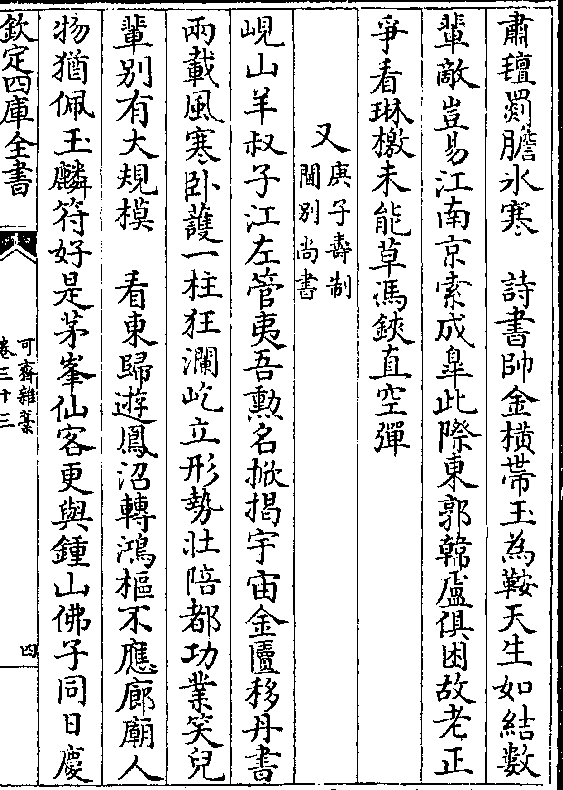 肅氊罽膽氷寒　詩書帥金横帶玉為鞍天生如結數
輩敵豈易江南京索成臯此際東郭韓盧俱困故老正
爭看琳檄未能草馮鋏直空彈
又庚子壽制
閫别尚書
峴山羊叔子江左管夷吾勲名掀揭宇宙金匱移丹書
兩載風寒卧䕶一柱狂瀾屹立形勢壯陪都功業笑兒
輩别有大規模　看東歸遊鳳沼轉鴻樞不應廊廟人
物猶佩玉麟符好是茅峯仙客更與鍾山佛子同日慶
欽定四庫全書
可齋雜藁
卷三十三
四